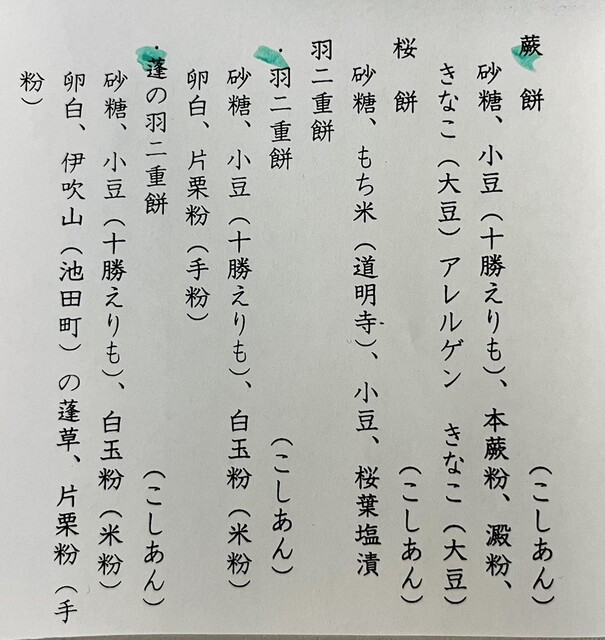 蕨餅 (こしあん)
砂糖、小豆(十勝えりも)、本蕨粉、澱粉、
きなこ(大豆)アレルゲン きなこ(大豆)
桜餅 (こしあん)
砂糖、もち米(道明寺)、小豆、桜葉塩漬
羽二重餅
・羽二重餅 (こしあん)
砂糖、小豆(十勝えりも)、白玉粉(米粉)
卵白、片栗粉(手粉)
・蓬の羽二重餅 (こしあん)
砂糖、小豆(十勝えりも)、白玉粉(米粉)
卵白、伊吹山(池田町)の蓬草、片栗粉(手
粉)